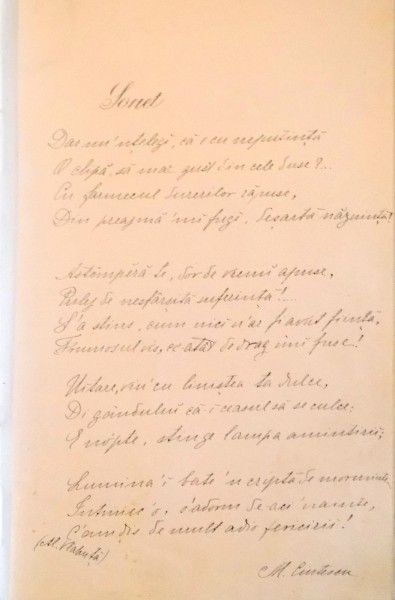 Sonet
Dar nu 'nțelegi, că e cu neputință
O clipă, să mai gust din cele duse?...
Cu farmecul durerilor răpuse,
Din preajmă 'mi fugi, deșartă năzuință!
Astâmpără te, dor de vremi apuse,
Prilej de nesfârșită suferință!...
S'a stins, cum nici n'ar fi avut ființă,
Frumosul vis, ce atât de drag îmi fuse!
Uitare, vin' cu liniștea ta dulce,
Di gândului că-i ceasul să se culce;
E nópte, stinge lampa amintirii;
Lumina 'i bate 'n criptă de morminte,
Întunec'o, s'adorm de aci 'nainte,
C'am dis de mult adio fericirii!
(Al. Vlahuță)
M. Emtescu